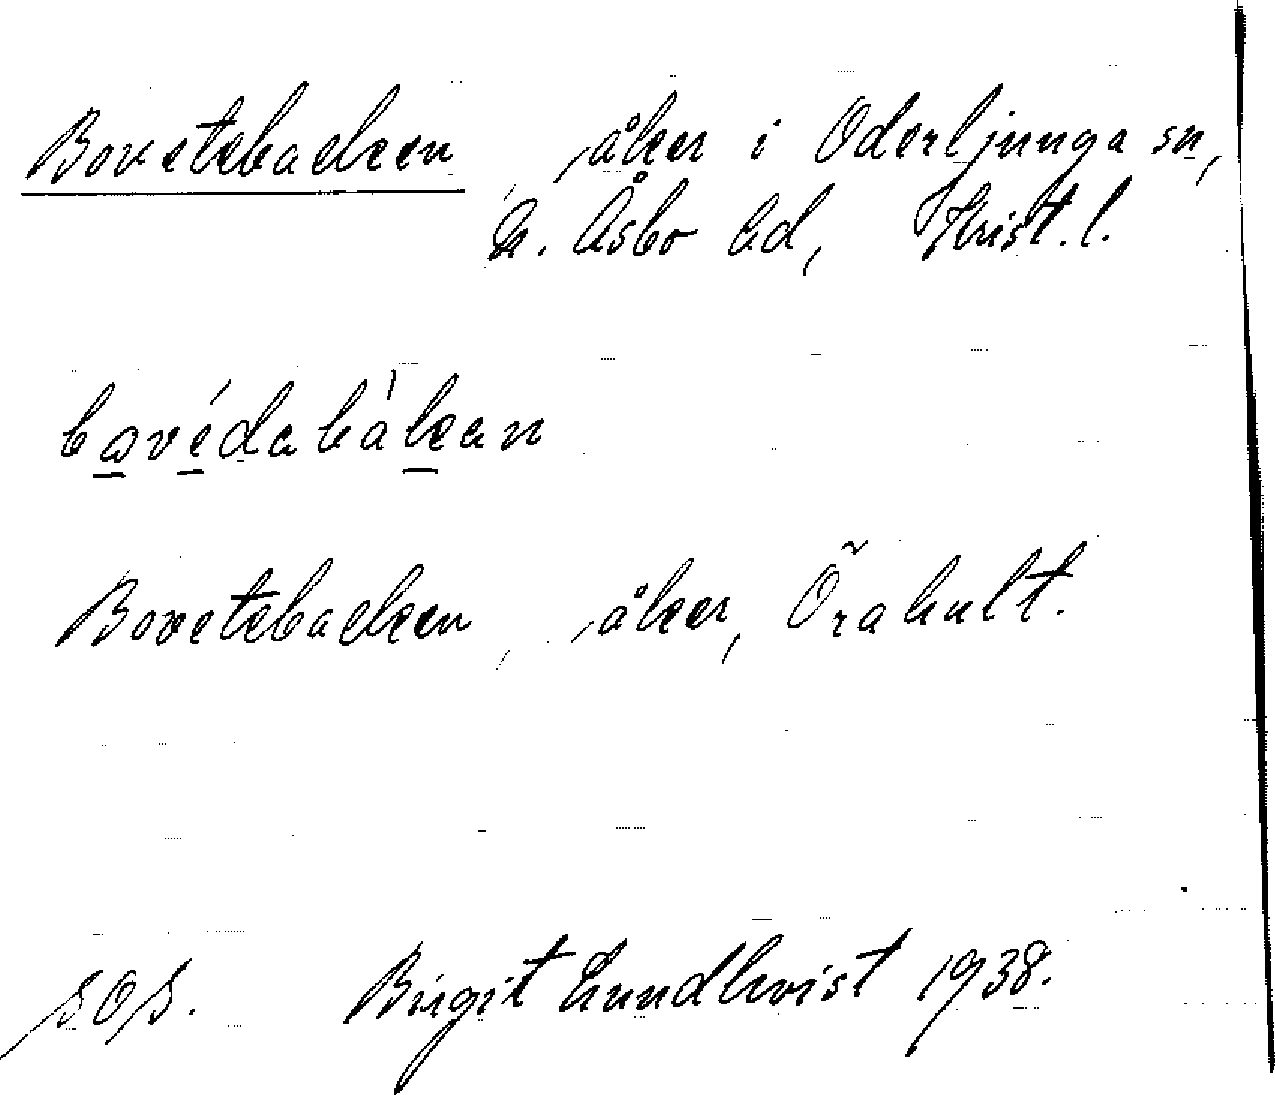 Bovetebacken, åker i Oderljunga sn,
N. Åsbo hd, Krist. l.
bovédabákan
Bovetebacken, åker, Örahult.
SOS. Birgit Lundkvist 1938.